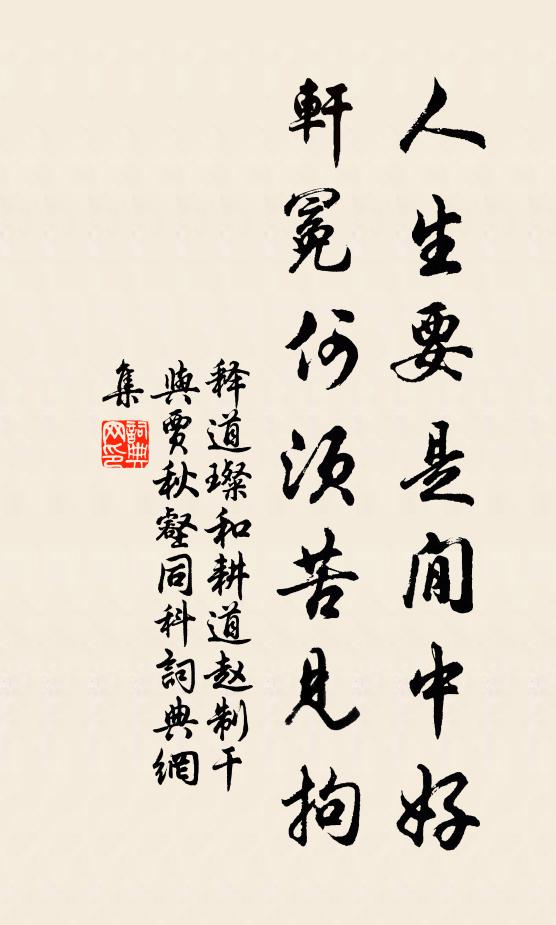 人生要是閒中好
軒冕何須苦見拘
释道璨和耕道赵制干
與賈秋壑同科詞典網
集
詞典
网印